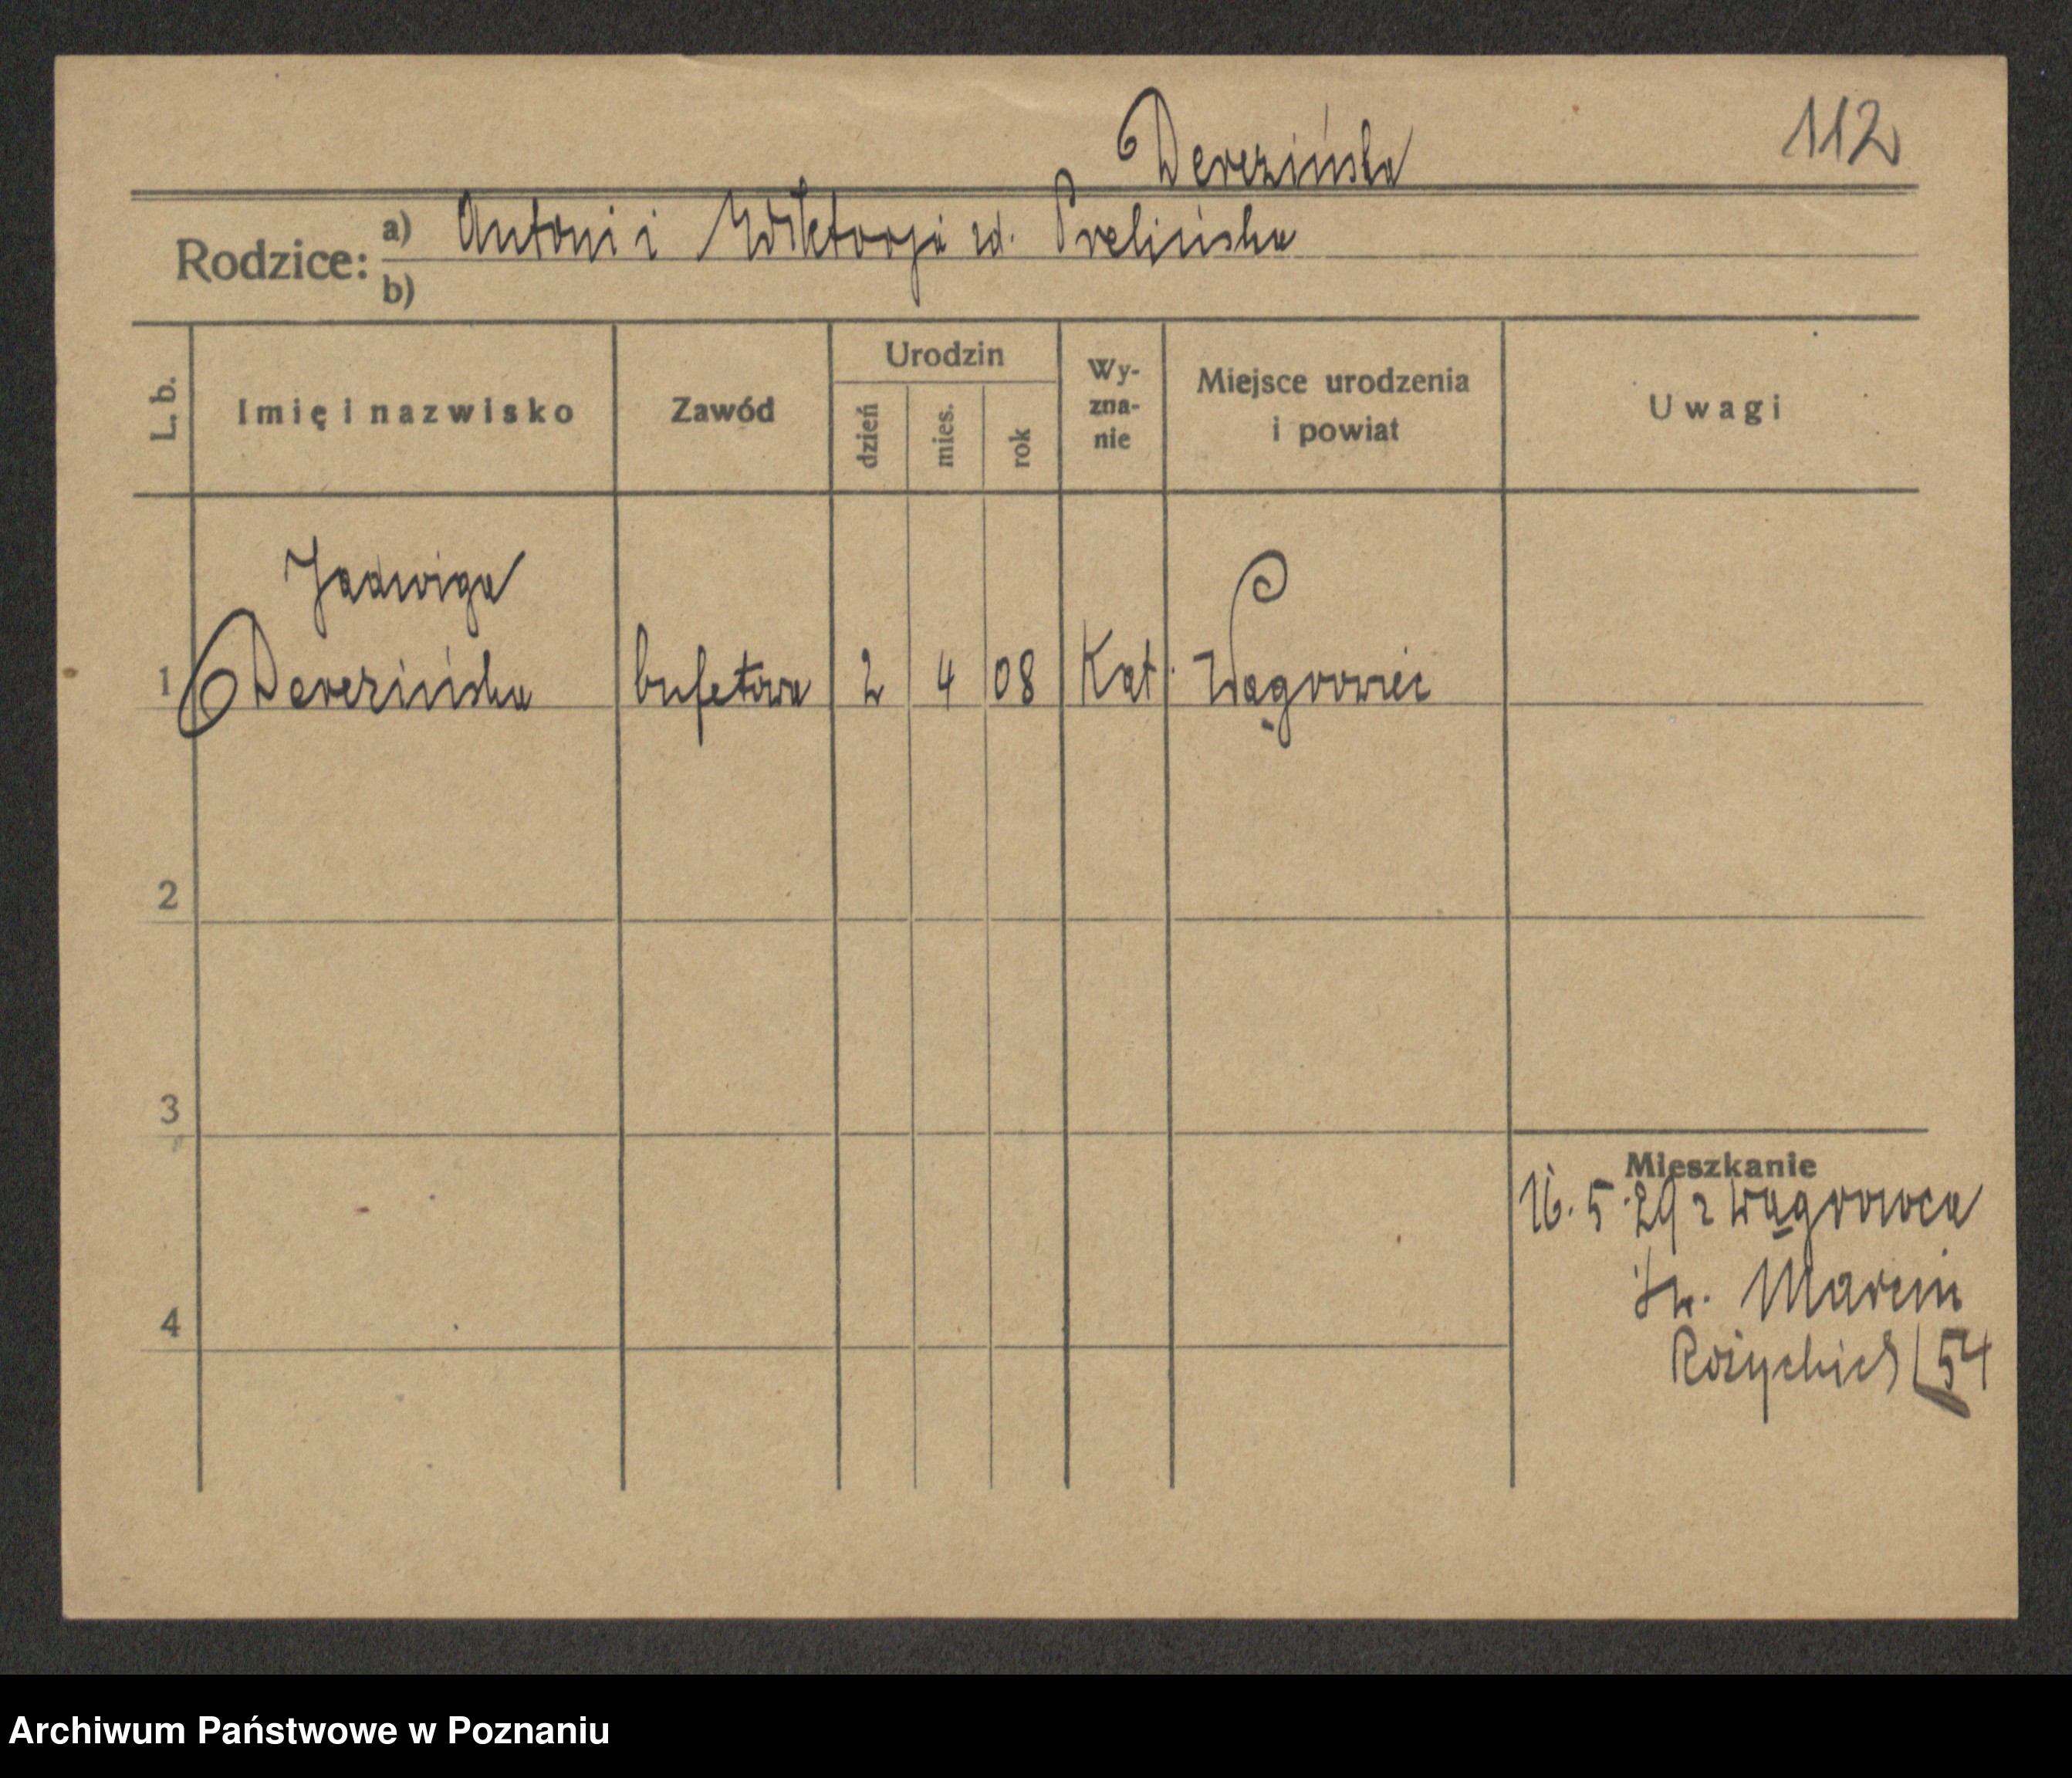 112
Derezińska
Rodzice: a) Antoni i Wiktorja zd. Prelińska
b)
L. b.
Imię i nazwisko
Zawód
Urodzin
dzień
mies.
rok
Wy-
zna-
nie
Miejsce urodzenia
i powiat
Uwagi
Jadwiga
1 Derezińska bufetowa 2 4 08 Kat. Wągrowiec
2
3
4
Mieszkanie
16. 5 29 z Wągrowca
Św. Marcin
54
Archiwum Państwowe w Poznaniu